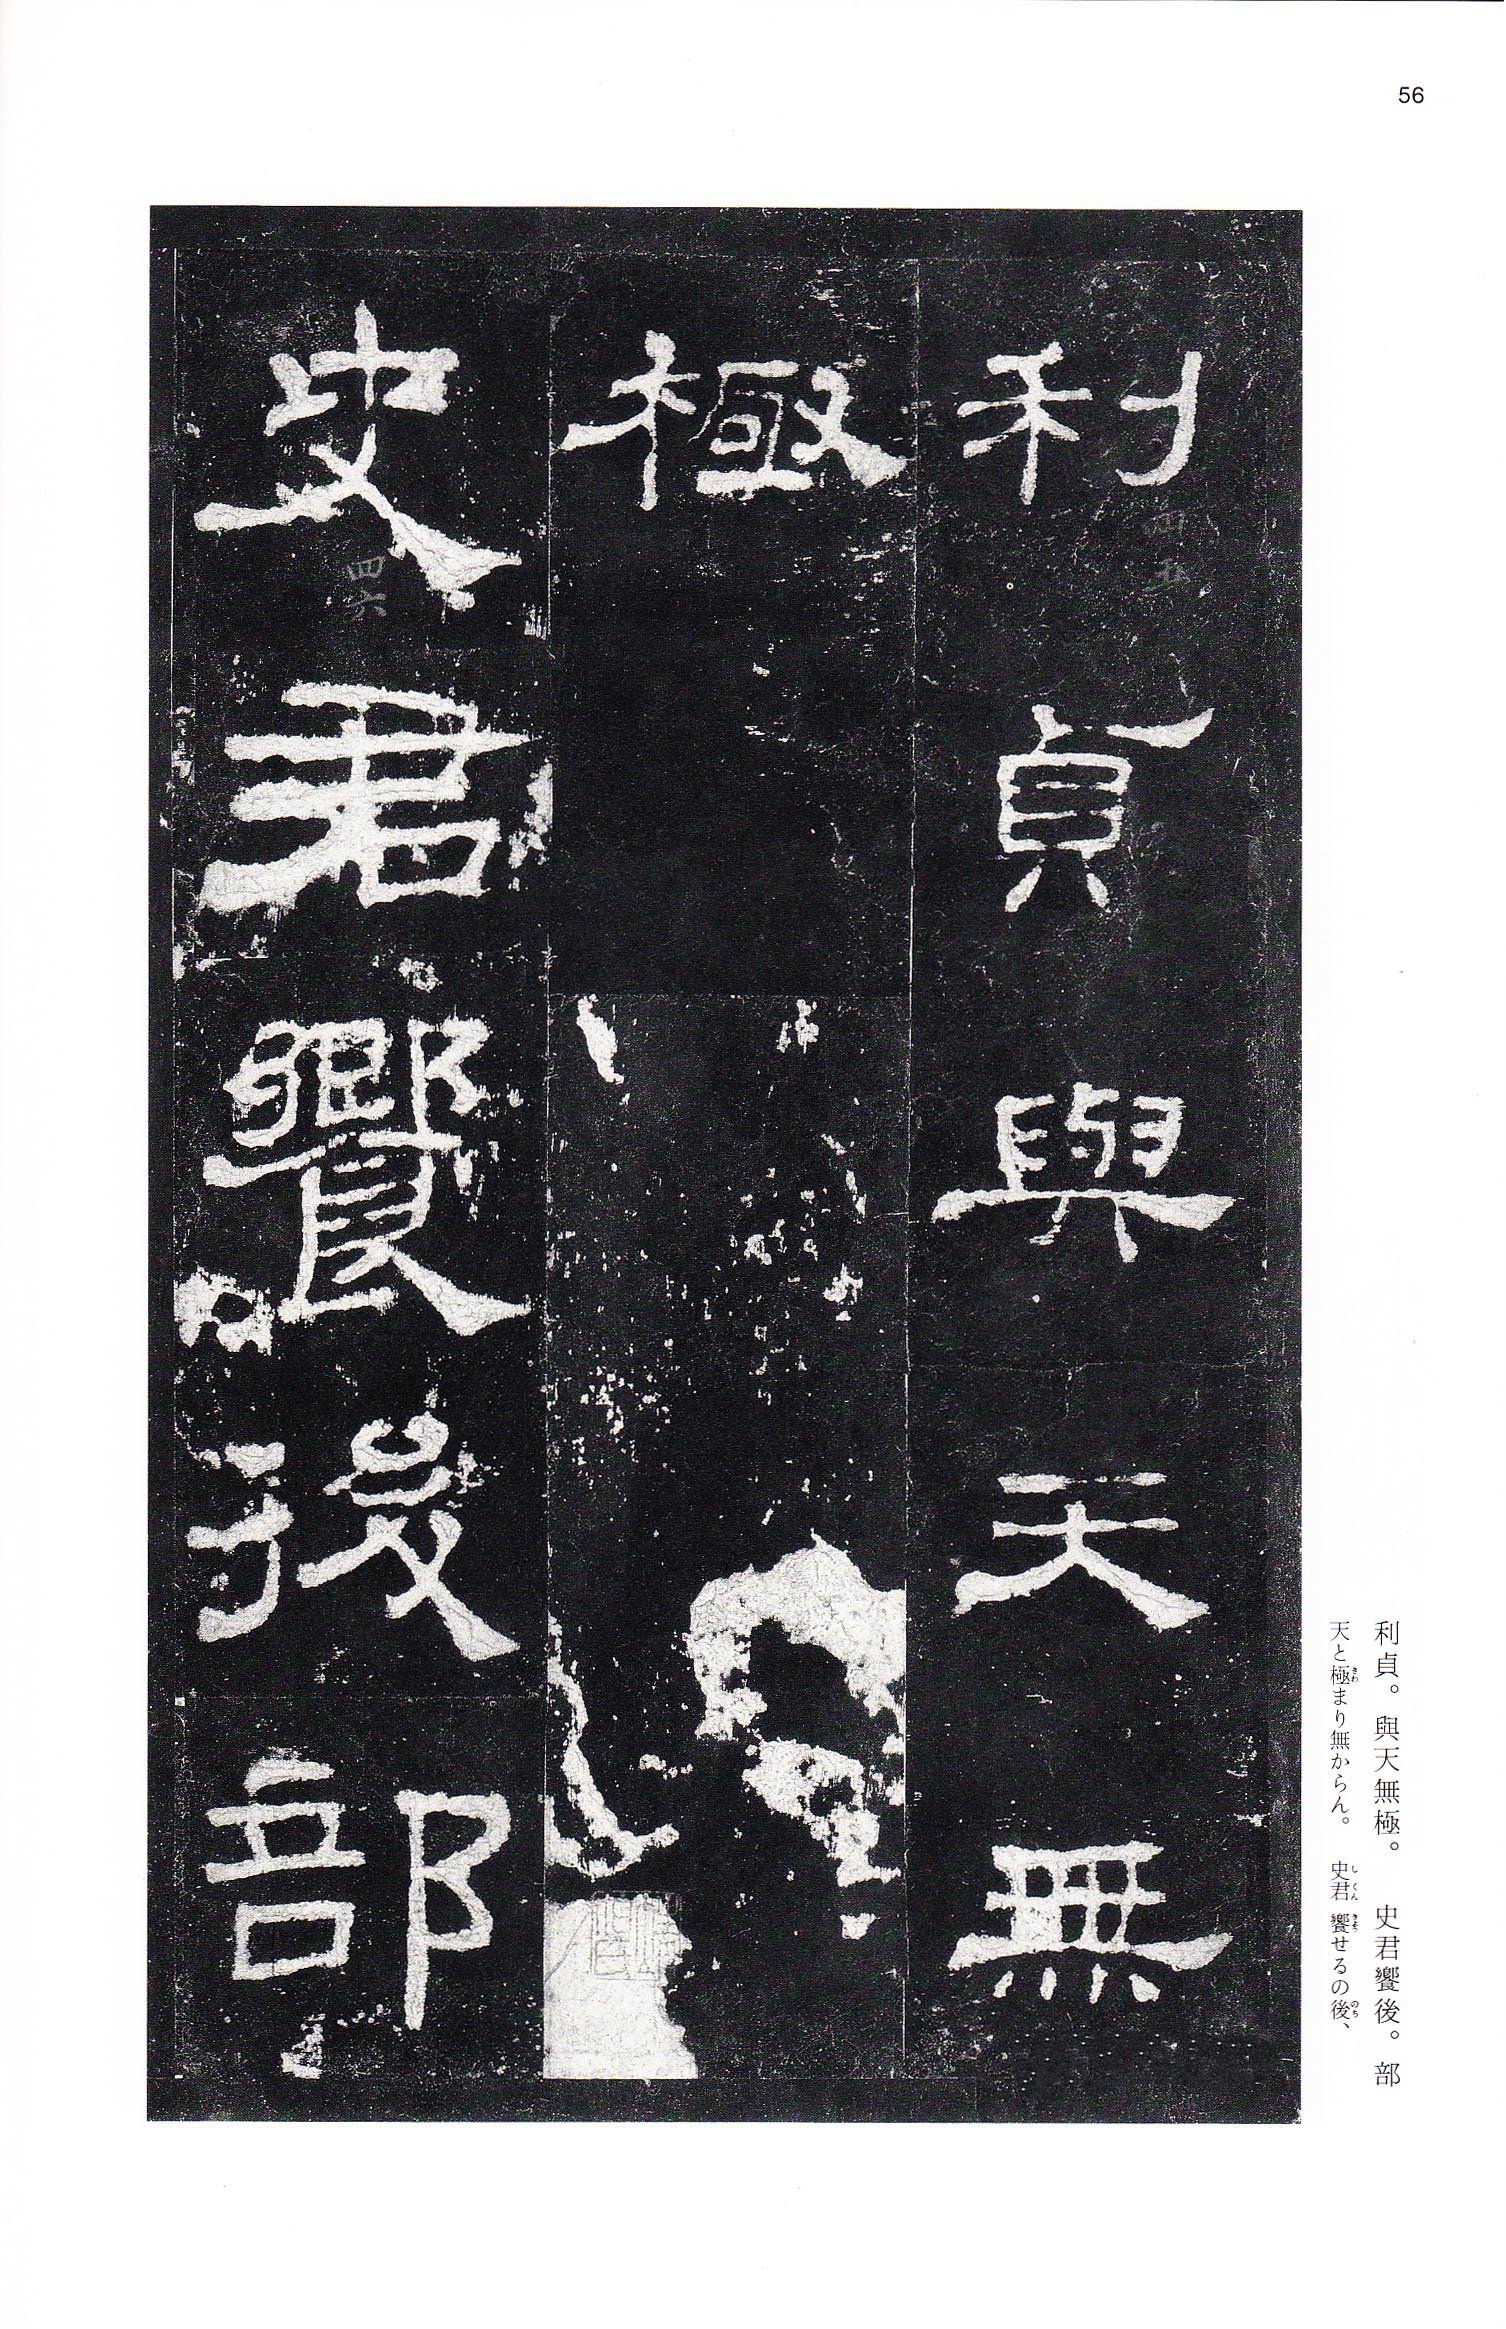 56
利貞與天無
極
史君饗後部
四五
四六
利貞。與天無極。 史君饗後。部
天と極まり無からん。 史君饗せるの後、
きわ
しくん
きょう
のち